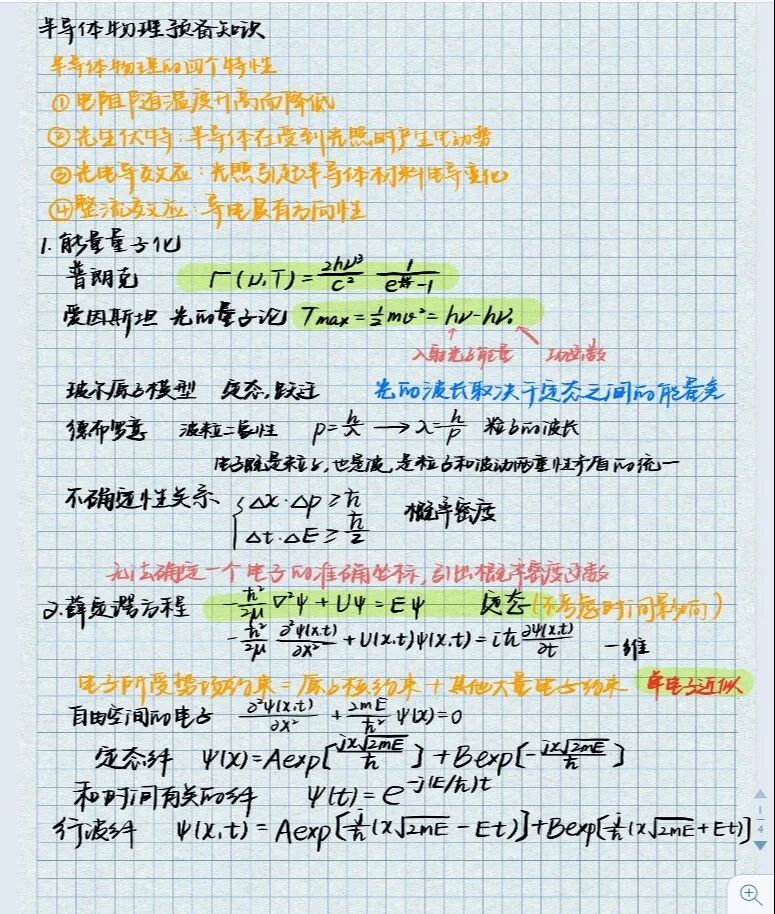 半导体物理预备知识
半导体物理的四个特性
① 电阻随温度升高而降低
② 光生伏特：半导体在受到光照时产生电动势
③ 光电导效应：光照引起半导体材料电导变化
④ 整流效应：导电具有方向性
1. 能量量子化
普朗克 Γ(ν,T) = 2hν³/c² 1/(e^{}-1)
爱因斯坦 光的量子论 Tmax = ½mv² = hν - hν₀
入射光子能量 功函数
玻尔原子模型 定态,跃迁 光的波长取决于定态之间的能量差
德布罗意 波粒二象性 p = h/λ → λ = h/p 粒子的波长
电子既是粒子,也是波,是粒子和波动两重性矛盾的统一
不确定性关系 { Δx·Δp ≥ ħ 概率密度
Δt·ΔE ≥ ħ/2
无法确定一个电子的准确坐标,引出概率密度函数
2. 薛定谔方程 -ħ²/2μ ∇²Ψ + UΨ = EΨ 定态(不考虑时间影响)
-ħ²/2μ ∂²Ψ(x,t)/∂x² + U(x,t)Ψ(x,t) = iħ ∂Ψ(x,t)/∂t 一维
电子所受势场约束 = 原子核约束 + 其他大量电子约束 单电子近似
自由空间的电子 ∂²Ψ(x,t)/∂x² + 2mE/ħ² Ψ(x) = 0
定态解 Ψ(x) = Aexp[jx√2mE/ħ] + Bexp[-jx√2mE/ħ]
和时间有关的解 Ψ(t) = e^{-j(E/ħ)t}
行波解 Ψ(x,t) = Aexp[j/ħ(x√2mE - Et)] + Bexp[j/ħ(x√2mE + Et)]
1
4